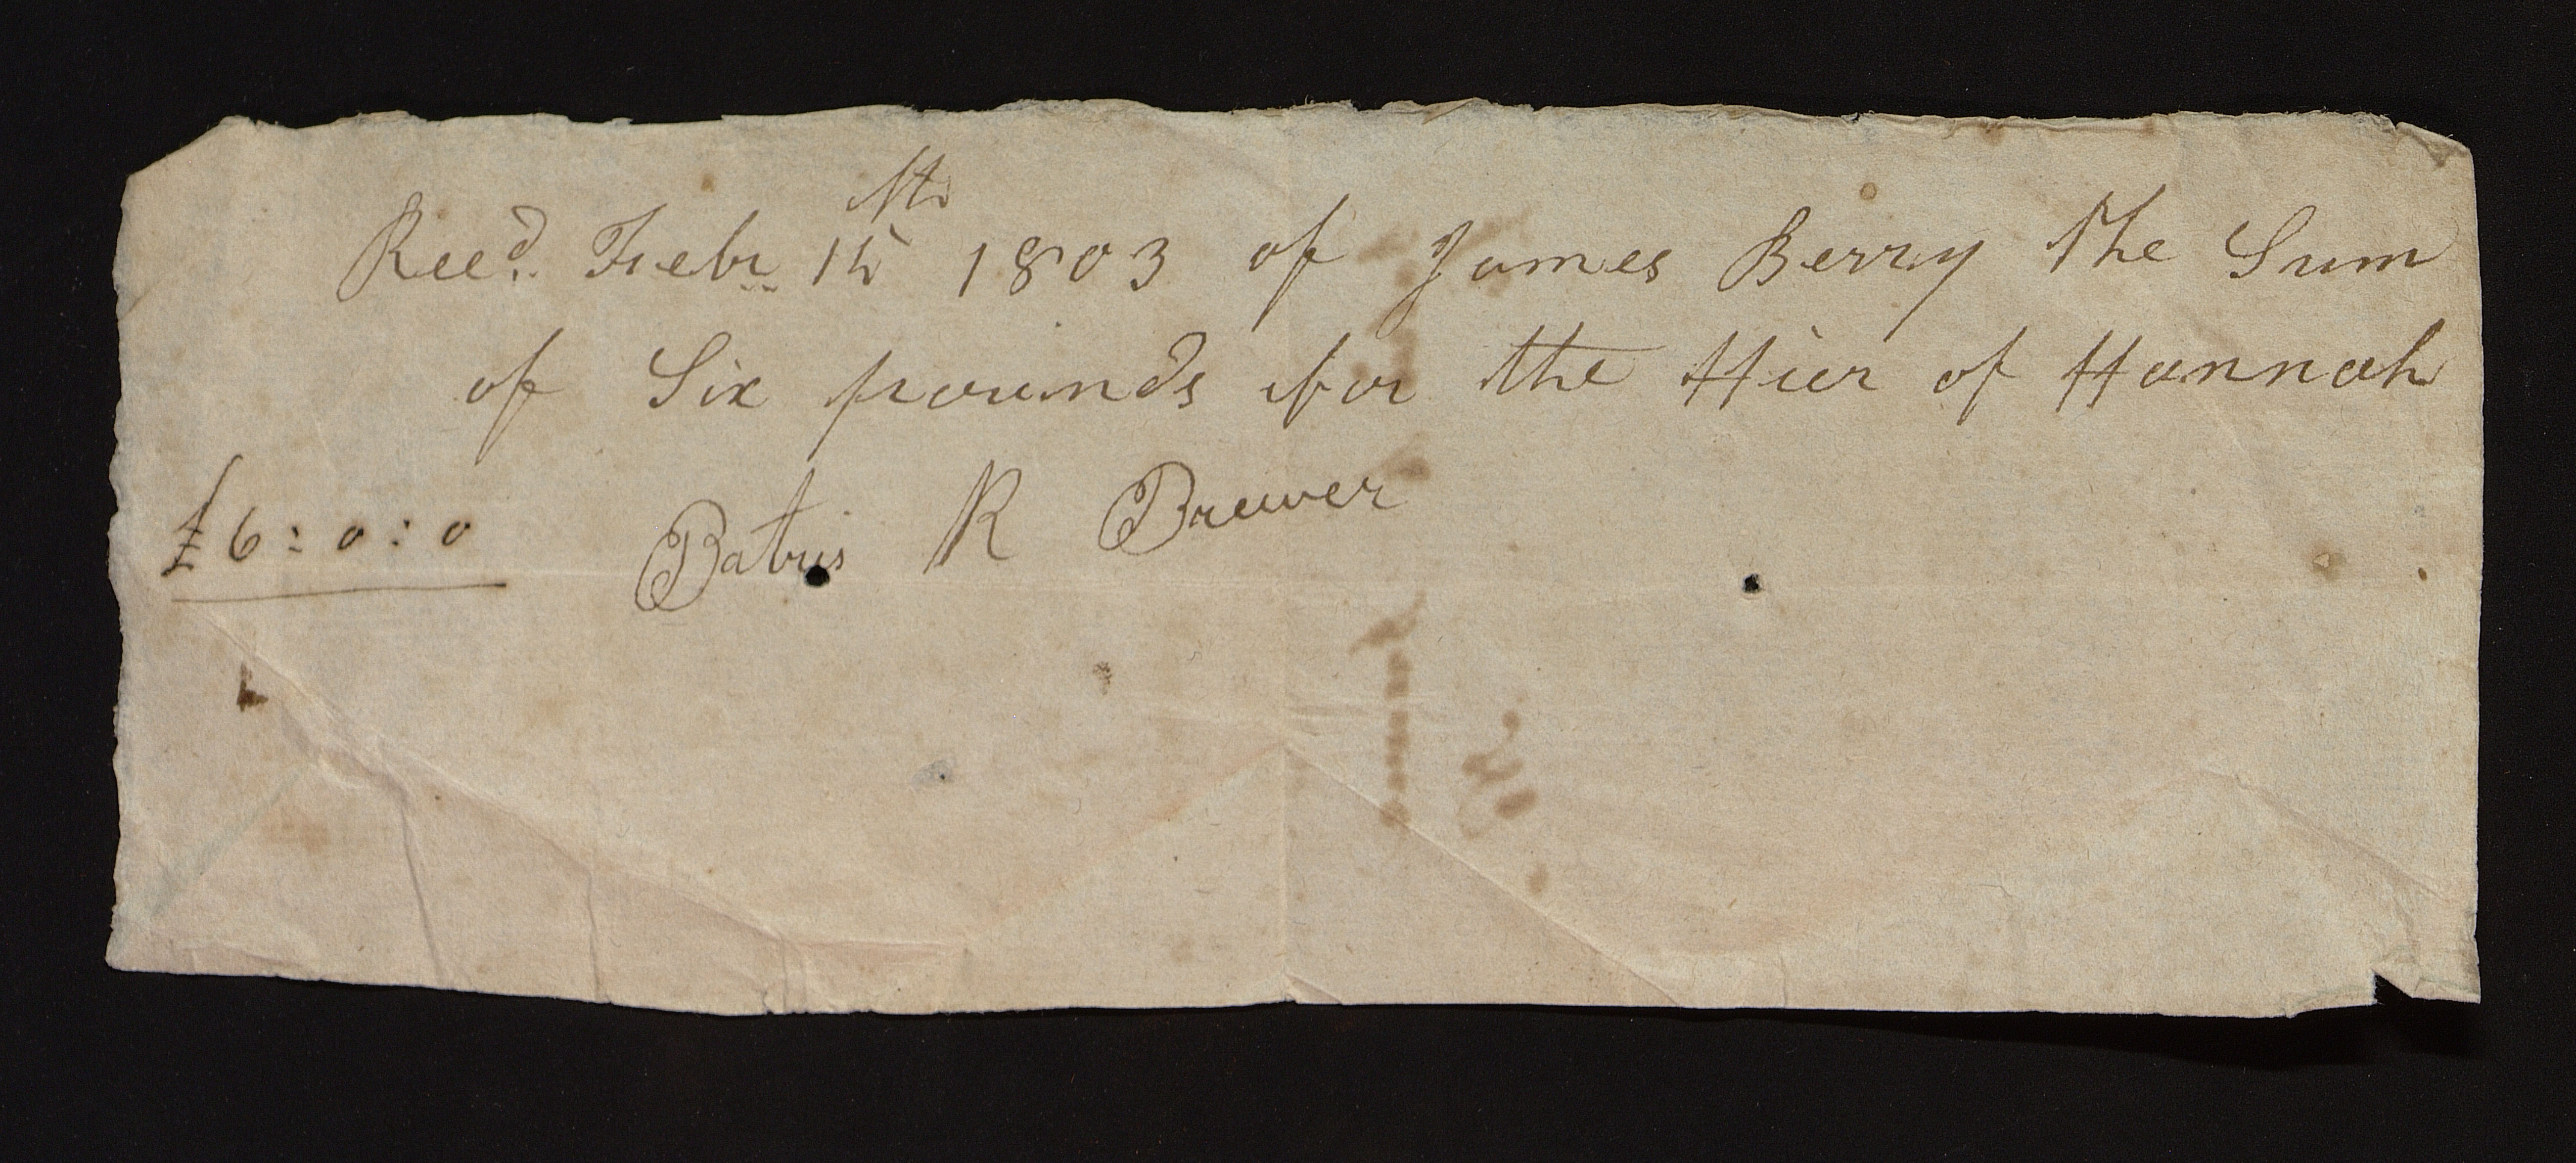 Recd. Febr 15th 1803 of James Berry the Sum
of Six pounds for the Hier of Hannah
£6:0:0 R Brewer